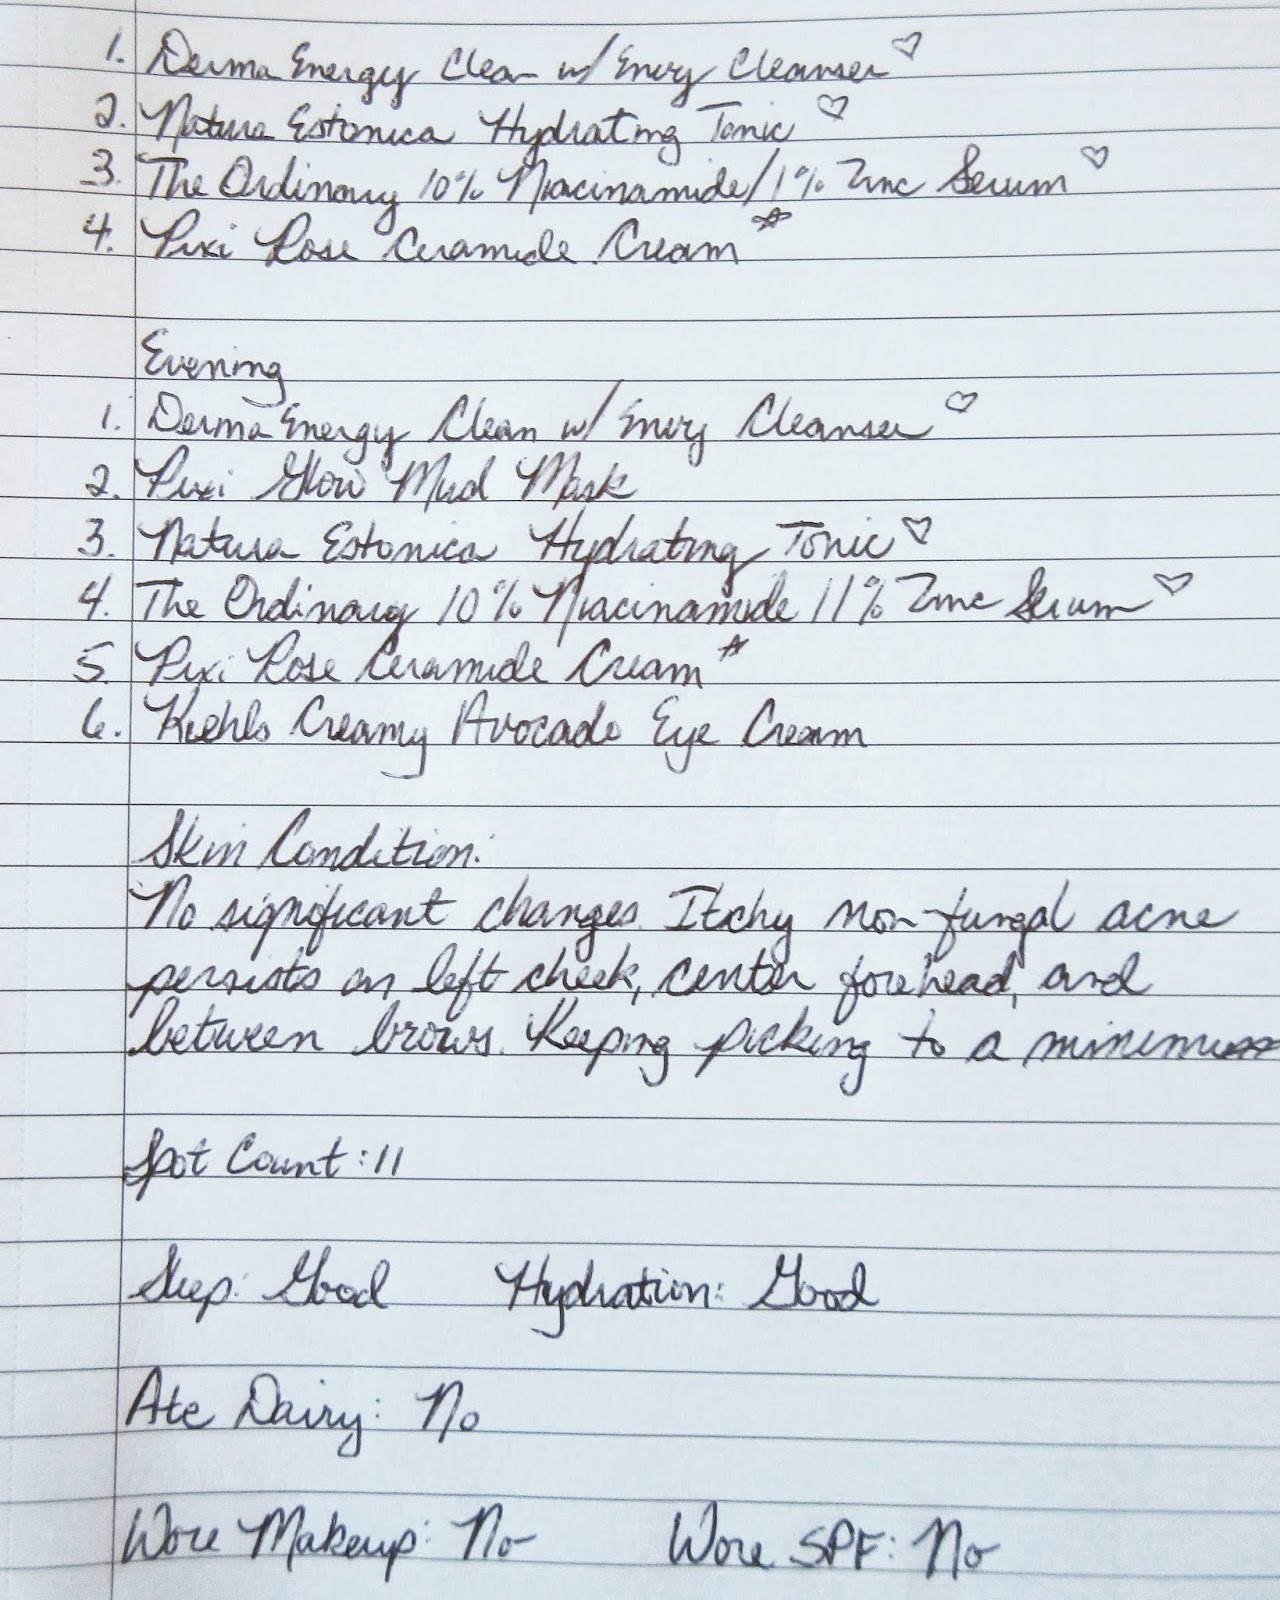 1. Derma Energy Clean w/ Envy Cleanser ♡
2. Natura Estonica Hydrating Tonic ♡
3. The Ordinary 10% Niacinamide/1% Zinc Serum ♡
4. Pixi Rose Ceramide Cream ☆
Evening
1. Derma Energy Clean w/ Envy Cleanser ♡
2. Pixi Glow Mud Mask
3. Natura Estonica Hydrating Tonic ♡
4. The Ordinary 10% Niacinamide /1% Zinc Serum ♡
5. Pixi Rose Ceramide Cream ☆
6. Kiehls Creamy Avocado Eye Cream
Skin Condition:
No significant changes. Itchy non-fungal acne
persists on left cheek, center forehead, and
between brows. Keeping picking to a minimum
Spot Count: 11
Sleep: Good Hydration: Good
Ate Dairy: No
Wore Makeup: No Wore SPF: No